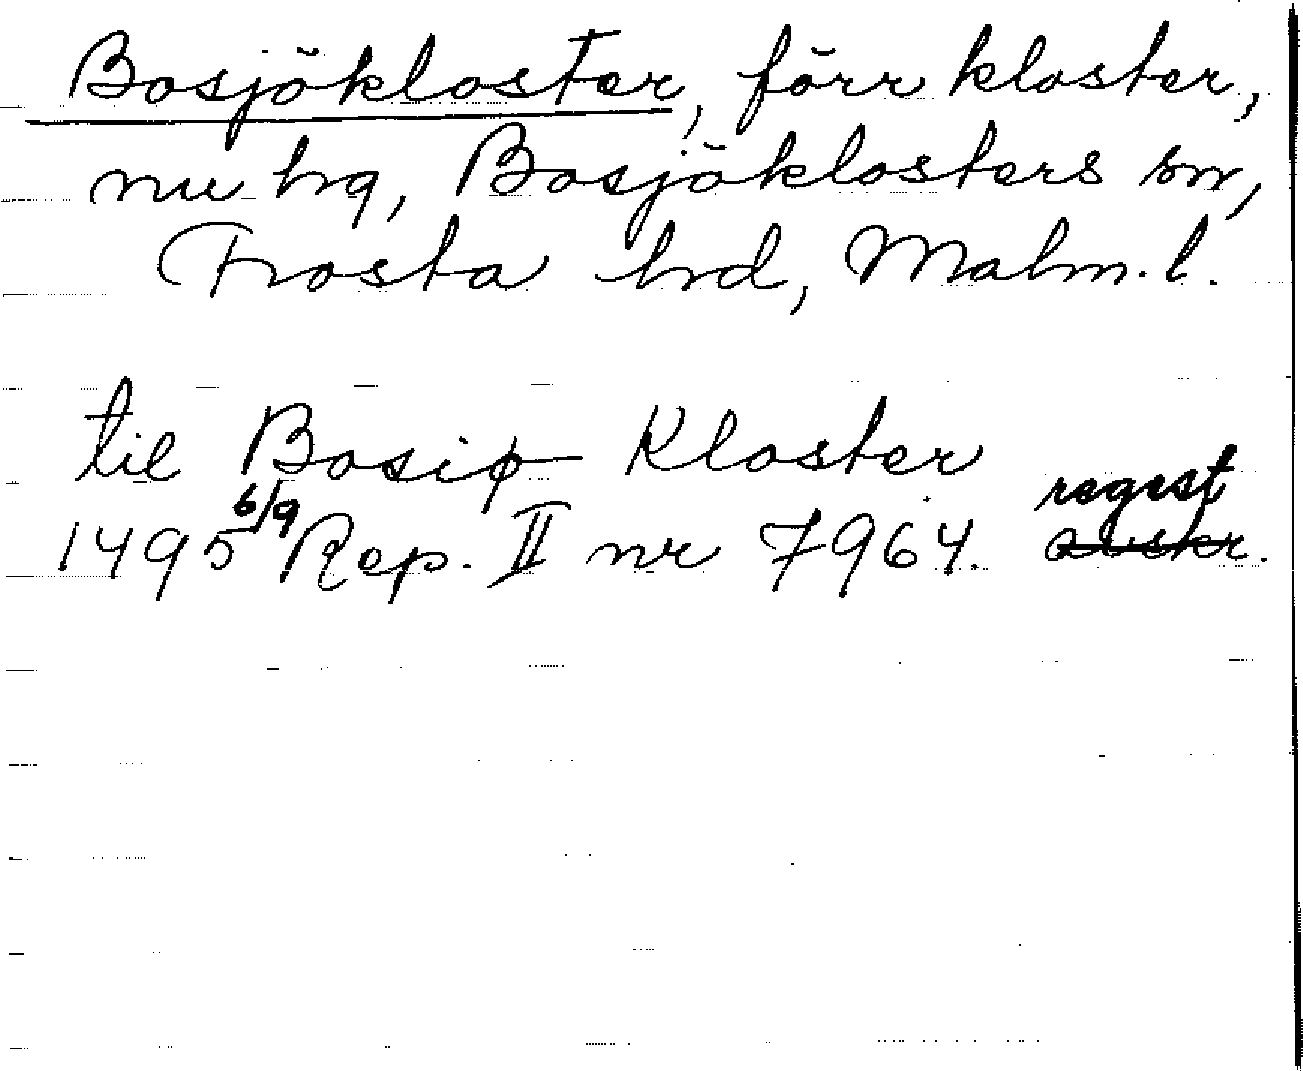 Bosjökloster, förr kloster,
nu hg, Bosjöklosters sn,
Frosta hd, Malm. l.
til Bosiø Kloster
1495 6/9 Rep. II nr 7964. regest
avskr.